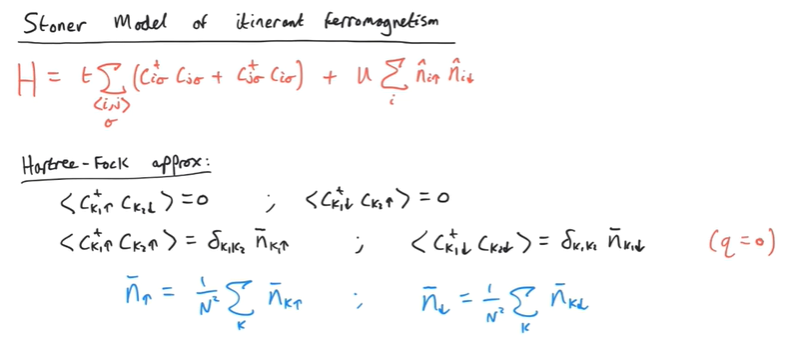 Stoner Model of itinerant ferromagnetism
H = t Σ_{<i,j> σ} (c†_{iσ} c_{jσ} + c†_{jσ} c_{iσ}) + U Σ_i n̂_{i↑} n̂_{i↓}
Hartree-Fock approx:
<c†_{k₁↑} c_{k₂↓}> = 0 ; <c†_{k₁↓} c_{k₂↑}> = 0
<c†_{k₁↑} c_{k₂↑}> = δ_{k₁k₂} n̄_{k₁↑} ; <c†_{k₁↓} c_{k₂↓}> = δ_{k₁k₂} n̄_{k₁↓} (q=0)
n̄_↑ = 1/N² Σ_k n̄_{k↑} ; n̄_↓ = 1/N² Σ_k n̄_{k↓}